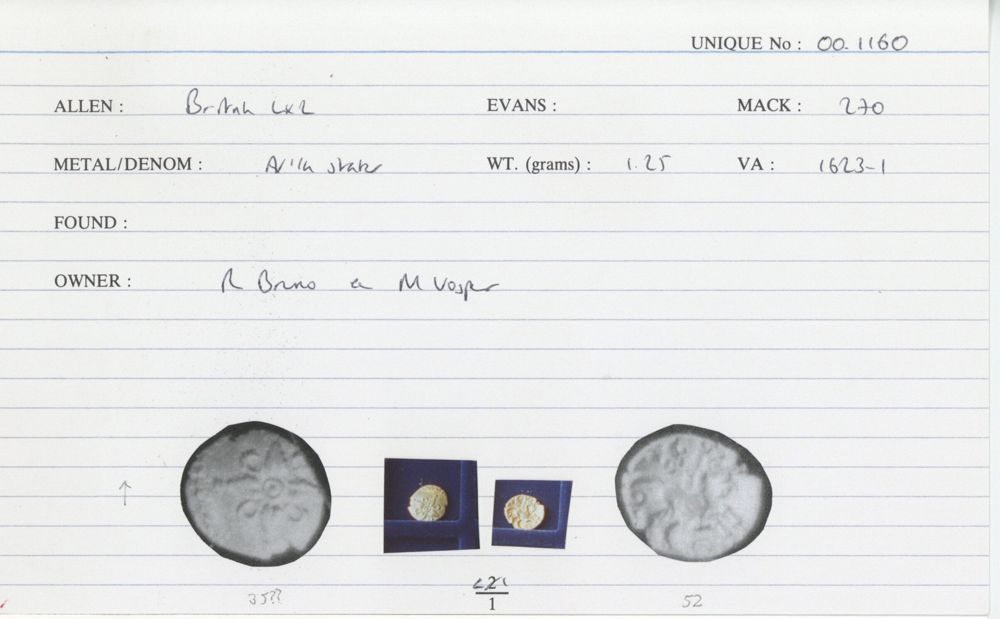 UNIQUE No : 00.1160
ALLEN : British LX2 EVANS : MACK : 270
METAL/DENOM : WT. (grams) : 1.25 VA : 1623-1
FOUND :
OWNER : R Bruno ex M Vosper
1
35?? 52